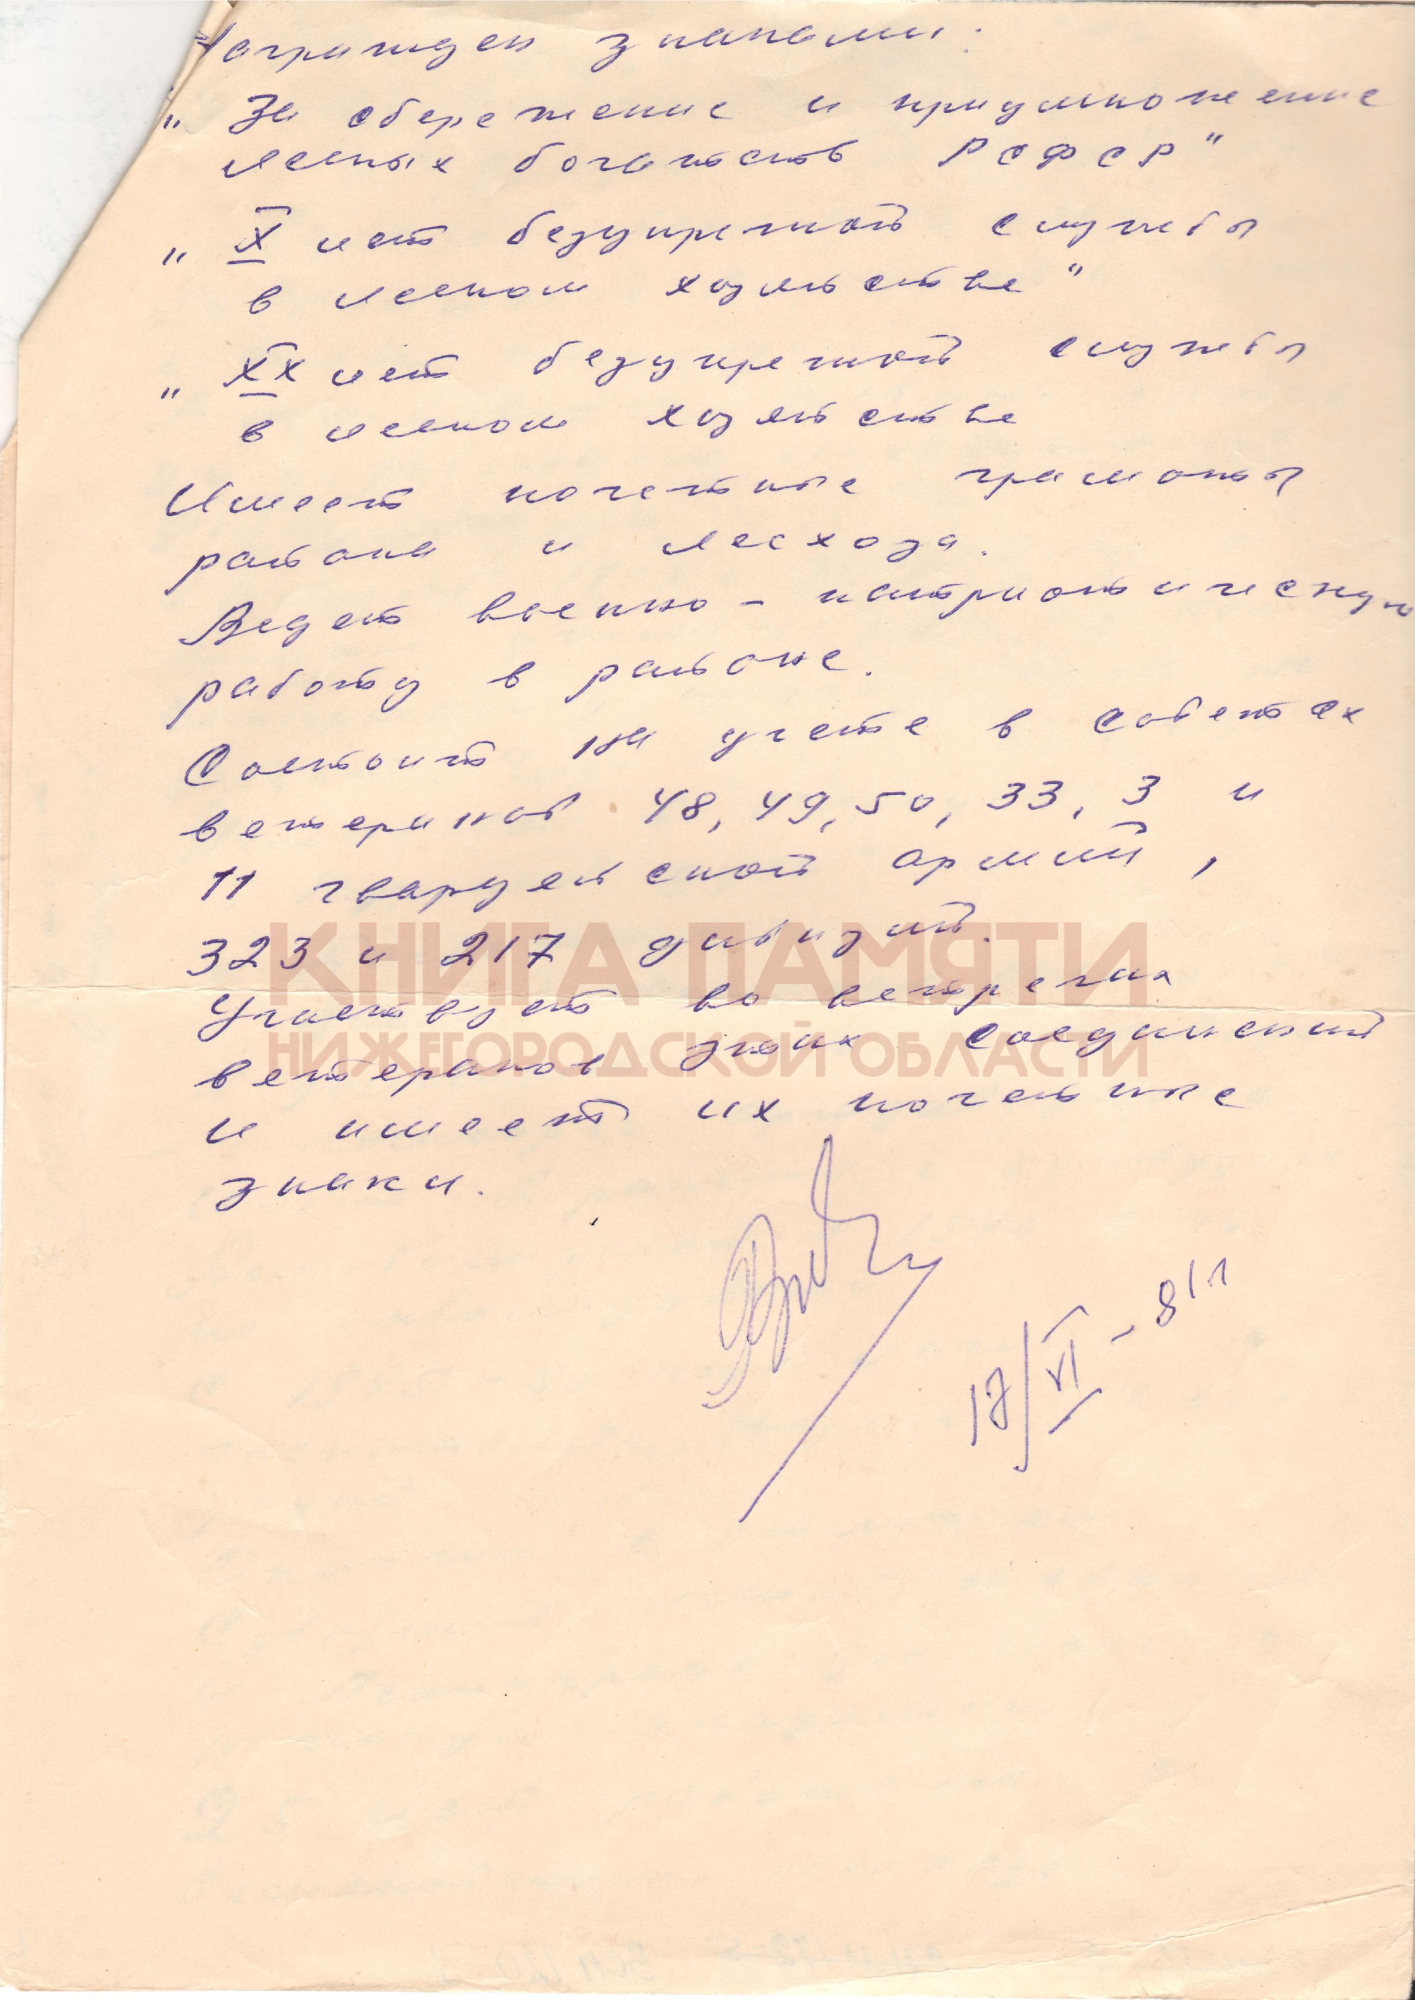 Награжден знаками:
„За сбережение и приумножение
лесных богатств РСФСР"
„X лет безупречной службы
в лесном хозяйстве"
„XX лет безупречной службы
в лесном хозяйстве
Имеет почетные грамоты
района и лесхоза.
Ведет военно-патриотическую
работу в районе.
Состоит на учете в советах
ветеранов 48, 49, 50, 33, 3 и
11 гвардейской армий,
323 и 217 дивизий.
КНИГА ПАМЯТИ
Участвует во встречах
ветеранов этих соединений
НИЖЕГОРОДСКОЙ ОБЛАСТИ
и имеет их почетные
знаки.
17/VI-